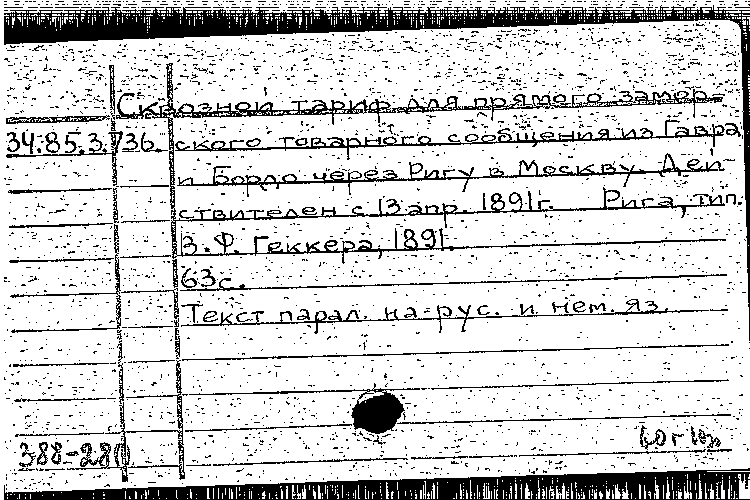 Сквозной тариф для прямого замор-
34.85.3.736. ского товарного сообщения из Гавра
и Бордо через Ригу в Москву. Дей-
ствителен с 13 апр. 1891г. Рига, тип.
З. Ф. Геккера, 1891.
63с.
Текст парал. на рус. и нем. яз.
388-280